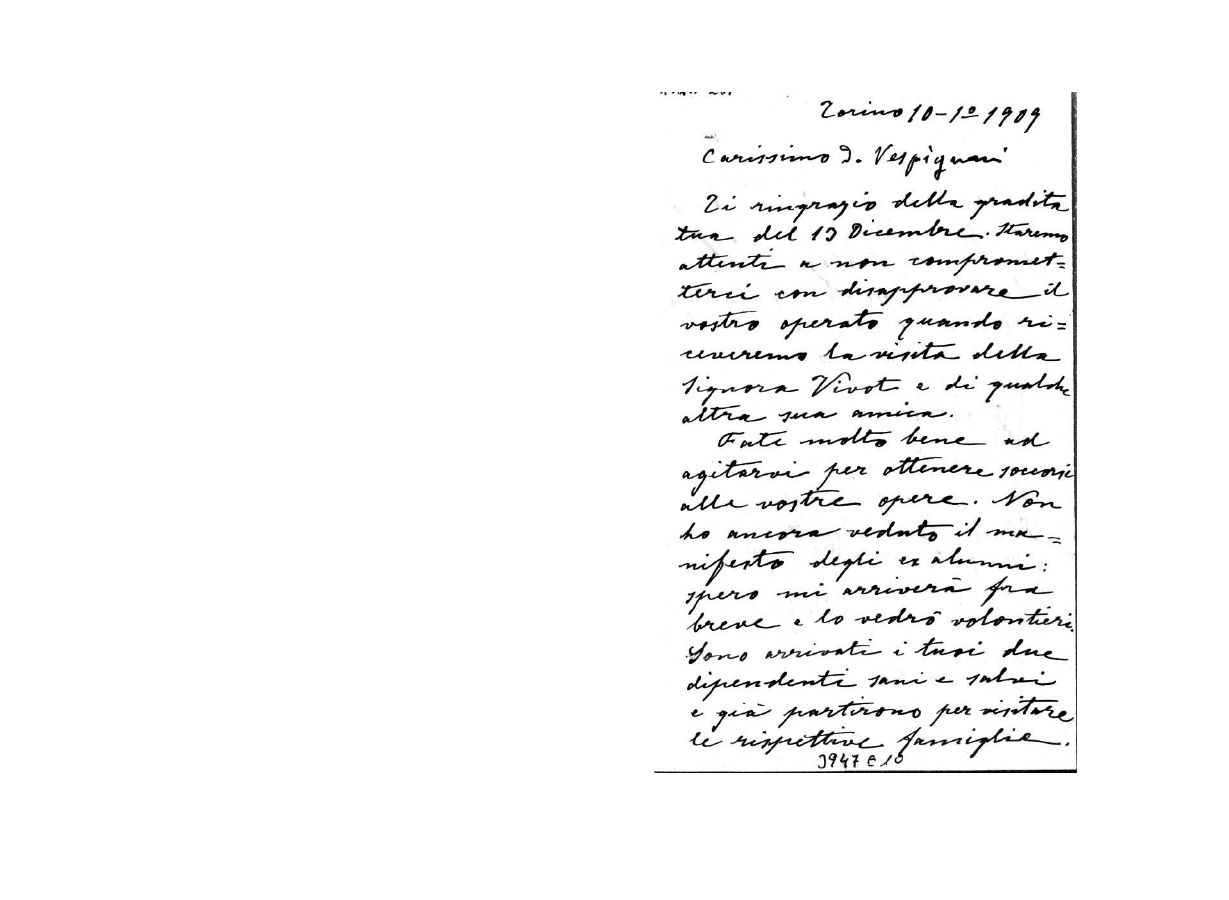 Torino 10-1º 1909
Carissimo D. Vespignani
Ti ringrazio della gradita
tua del 13 Dicembre. Staremo
attenti a non compromet=
terci con disapprovare il
vostro operato quando ri=
ceveremo la visita della
Signora Vivot e di qualche
altra sua amica.
Fate molto bene ad
agitarvi per ottenere soccorsi
alle vostre opere. Non
ho ancora veduto il ma=
nifesto degli ex alunni:
spero mi arriverà fra
breve e lo vedrò volontieri.
Sono arrivati i tuoi due
dipendenti sani e salvi
e già partirono per visitare
le rispettive famiglie.
3947 E 10